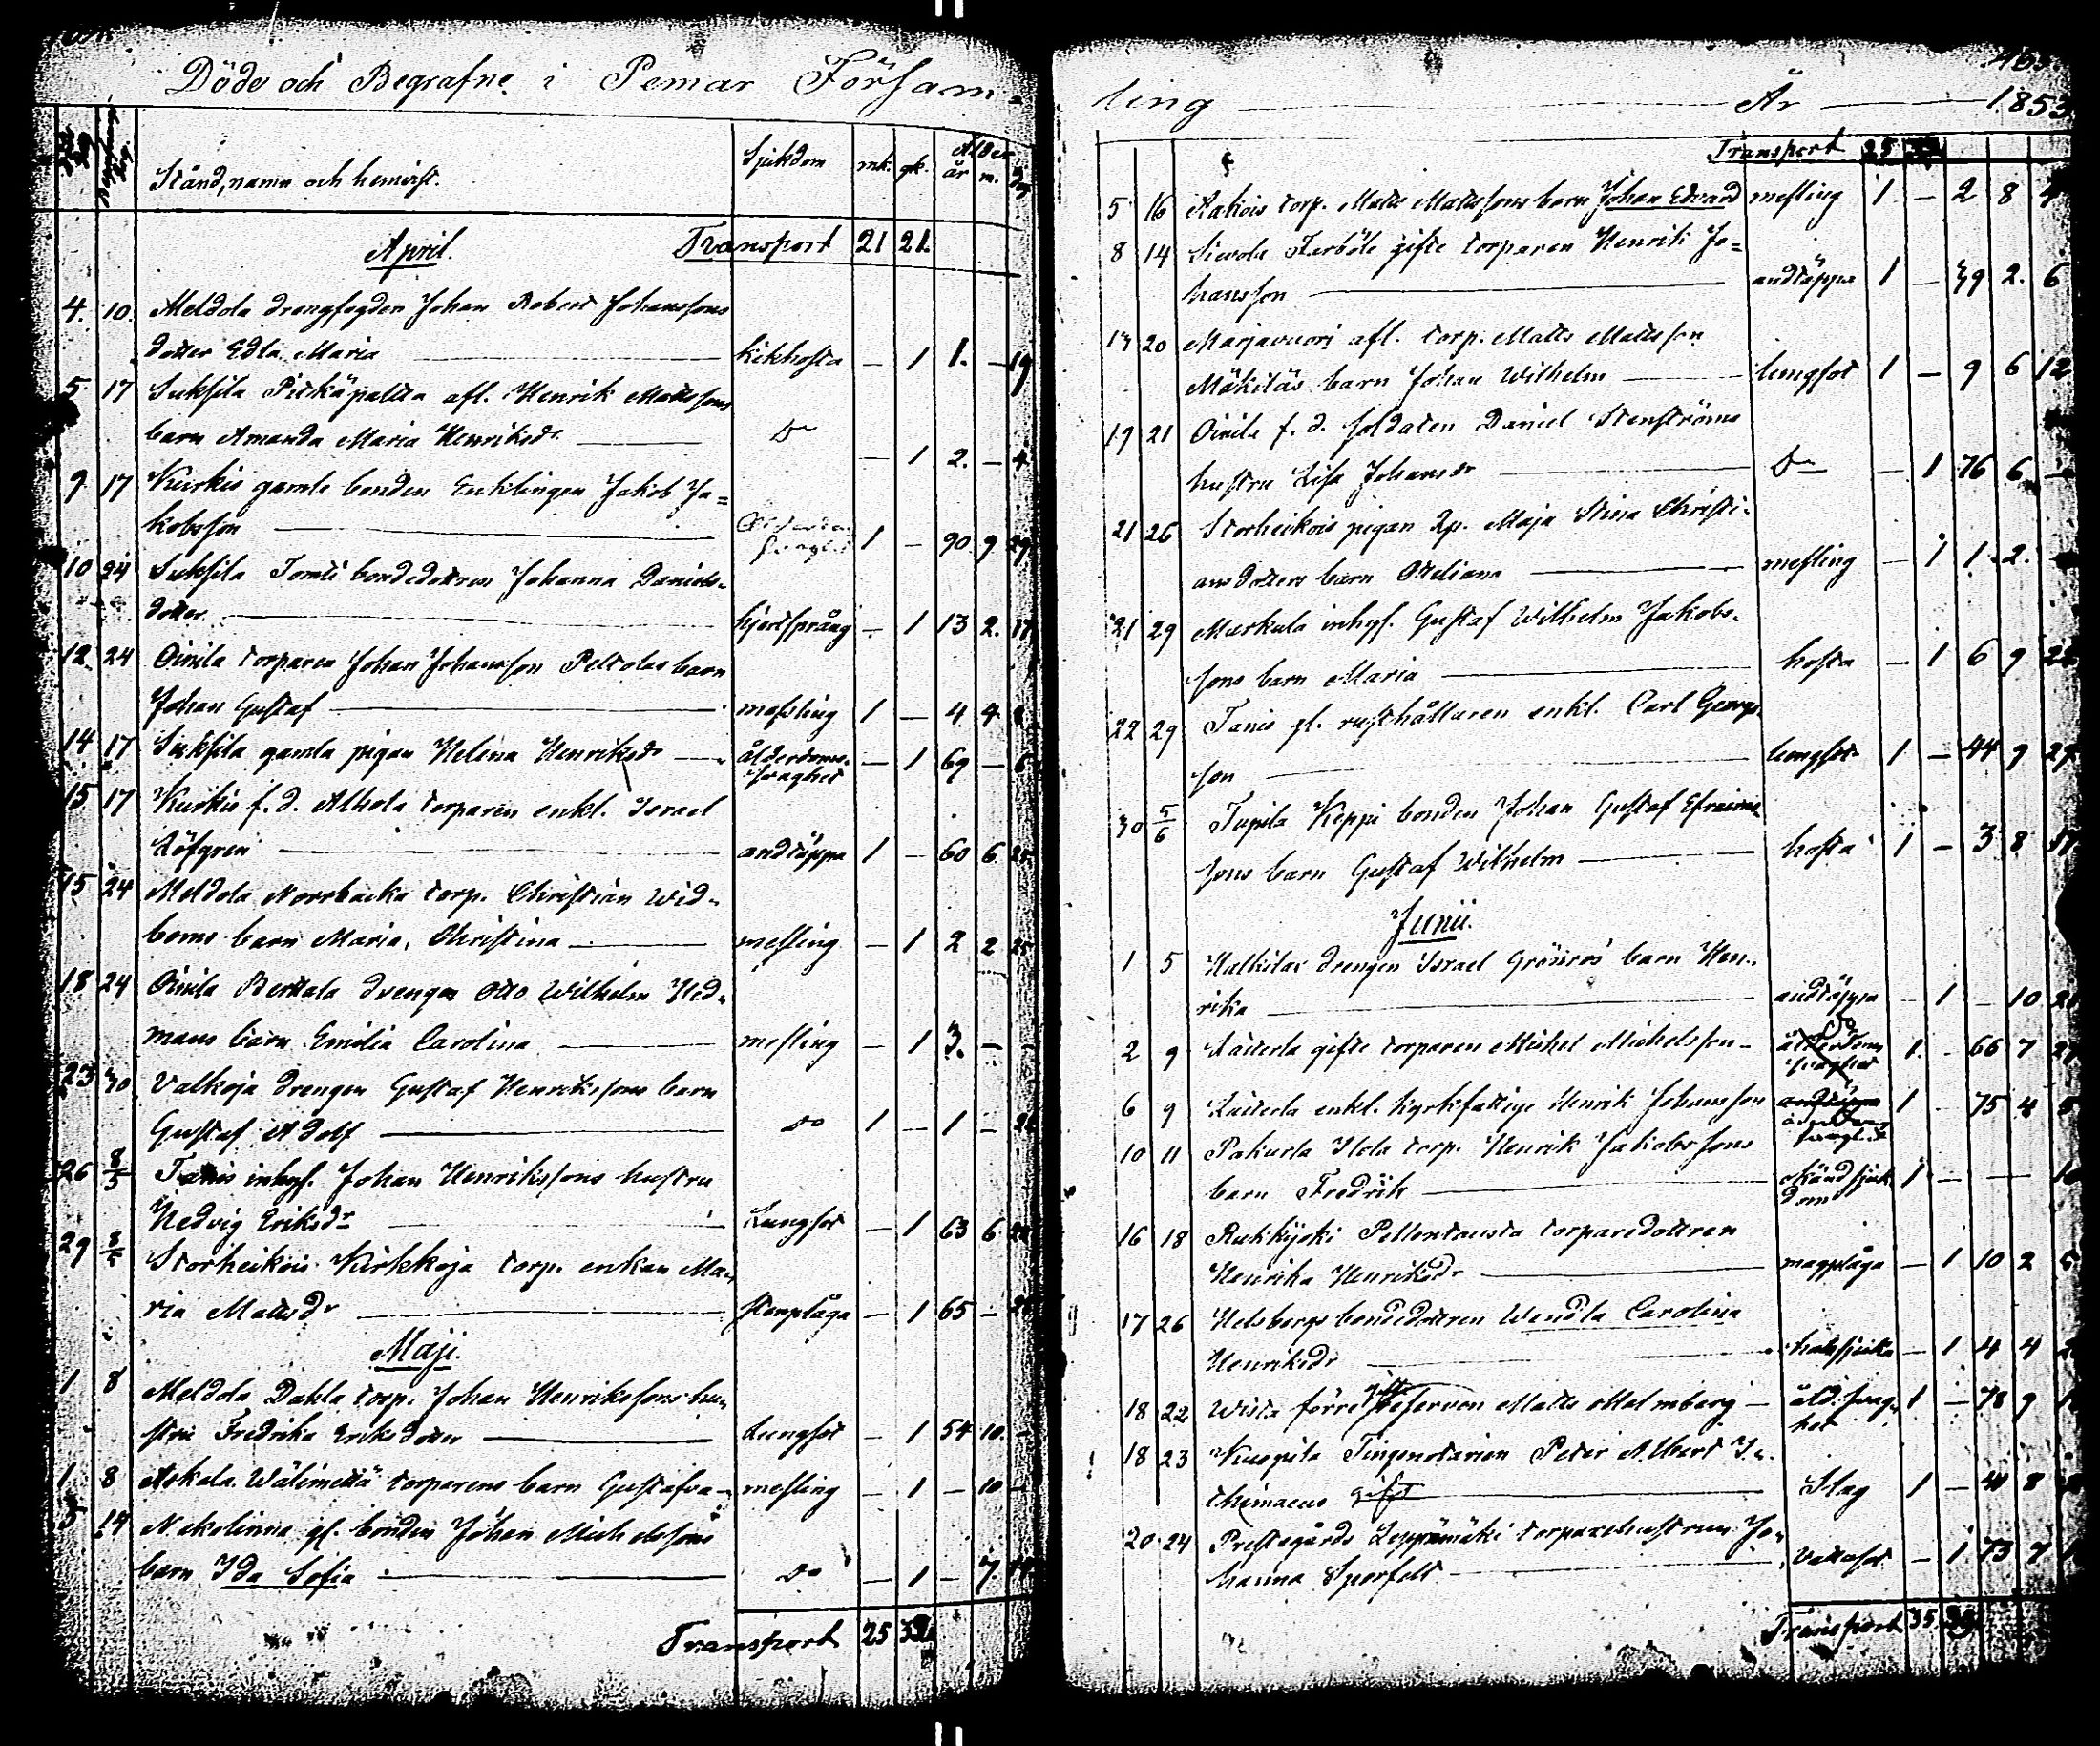 Döde och Begrafne i Pemar Försam-
Stånd, namn och hemvist. Sjukdom mk. qk. Ålder år m. dag
April. Transport 21 21.
4. 10. Meldola drengfogden Johan Robert Johanssons
dotter Edla Maria kikhosta — 1 1. — 19
5. 17 Suksila Pitkäpaltta afl. Henrik Mattssons
barn Amanda Maria Henriksdr Do — 1 2. — 4
9 17 Kurkis gamle bonden Enklingen Jakob Ja=
kobsson 1 — 90 9 29
10 24 Suksila Tomti bondedottren Johanna Daniels-
dotter hjertsprång — 1 13 2. 17
12. 24 Oinila torparen Johan Johansson Peltolas barn
Johan Gustaf messling 1 — 4 4
14 17 Suksila gamla pigan Helena Henriksdr ålderdoms-
svaghet — 1 69 — 6
15 17 Kurkis f. d. Alhola torparen enkl. Israel
Löfgren andtäppa 1 — 60 6 25
15 24 Meldola Norrbacka torp. Christian Wid-
boms barn Maria, Christina messling — 1 2 2 25
18 24 Oinila Berttala drengen Otto Wilhelm Hed-
mans barn Emilia Carolina messling — 1 3. — —
23 30 Valkoja drengen Gustaf Henrikssons barn
Gustaf Adolf do 1 — 1 —
26 8/5 Tanis inhys. Johan Henrikssons hustru
Hedvig Eriksdr Lungsot — 1 63 6
29 Storheikois Kirkkoja torp. enkan Ma-
ria Mattsdr Torrplåga — 1 65 —
Maji.
1 8 Meldola Dahla torp. Johan Henrikssons hu-
stru Fredrika Eriksdotter Lungsot — 1 54 10. —
1 8 Askala Wälimettä torparens barn Gustafva messling — 1 — 10 —
5 19 Nakolinna gl. bonden Johan Michelssons
barn Ida Sofia do — 1 — 7.
Transport 25 32
ling År 1853
Transport 25 32
5 16 Aakois torp. Matts Mattssons barn Johan Edvard messling 1 — 2 8
8 14 Sievola Färböle gifte torparen Henrik Jo=
hansson andtäppa 1 — 39 2. 6
13 20 Marjavuori afl. torp. Matts Mattsson
Mäkiläs barn Johan Wilhelm lungsot 1 — 9 6 12
19 21 Oinila f. d. soldaten Daniel Stenströms
hustru Lisa Johansdr Do — 1 76 6 —
21 26 Storheikois pigan Maja Stina Christi-
ansdotters barn Otteliana messling — 1 1. 2.
21 29 Murkula inhys. Gustaf Wilhelm Jakobs-
sons barn Maria hosta — 1 6 9 22
22 29 Tanis gl. rusthållaren enkl. Carl Georgs-
son lungsot 1 — 44 9 29
30 5/6 Tupila Keppi bonden Johan Gustaf Efraims-
sons barn Gustaf Wilhelm hosta 1 — 3 8 17
Junii.
1 5 Halkilax drengen Israel Grönros barn Hen-
rika andtäppa — 1 — 10
2 9 Läderla gifte torparen Michel Michelsson 1. — 66 7
6 9 Läderla enkl. kyrkfattige Henrik Johansson ålderdoms
svaghet 1 — 75 4
10 11 Pakurla Ilola torp. Henrik Jakobssons
barn Fredrik okänd sjuk-
dom 1 — — —
16 18 Rukkijoki Pellontausta torparedottren
Henrika Henriksdr magplåga — 1 10 2
17 26 Helsbergs bondedottren Wendla Carolina
Henriksdr halssjuka — 1 4 4
18 22 Wista förre Matts Malmberg ald. svag-
het 1 — 78 9
18 23 Kuspila Tingsnotarien Peter Albert I-
thimaeus gift Slag 1 — 41 8
20 24 Prestegårds Leppämäki torparehustrun Jo-
hanna Sporfelt Vattusot — 1 73 7
Transport 35 39